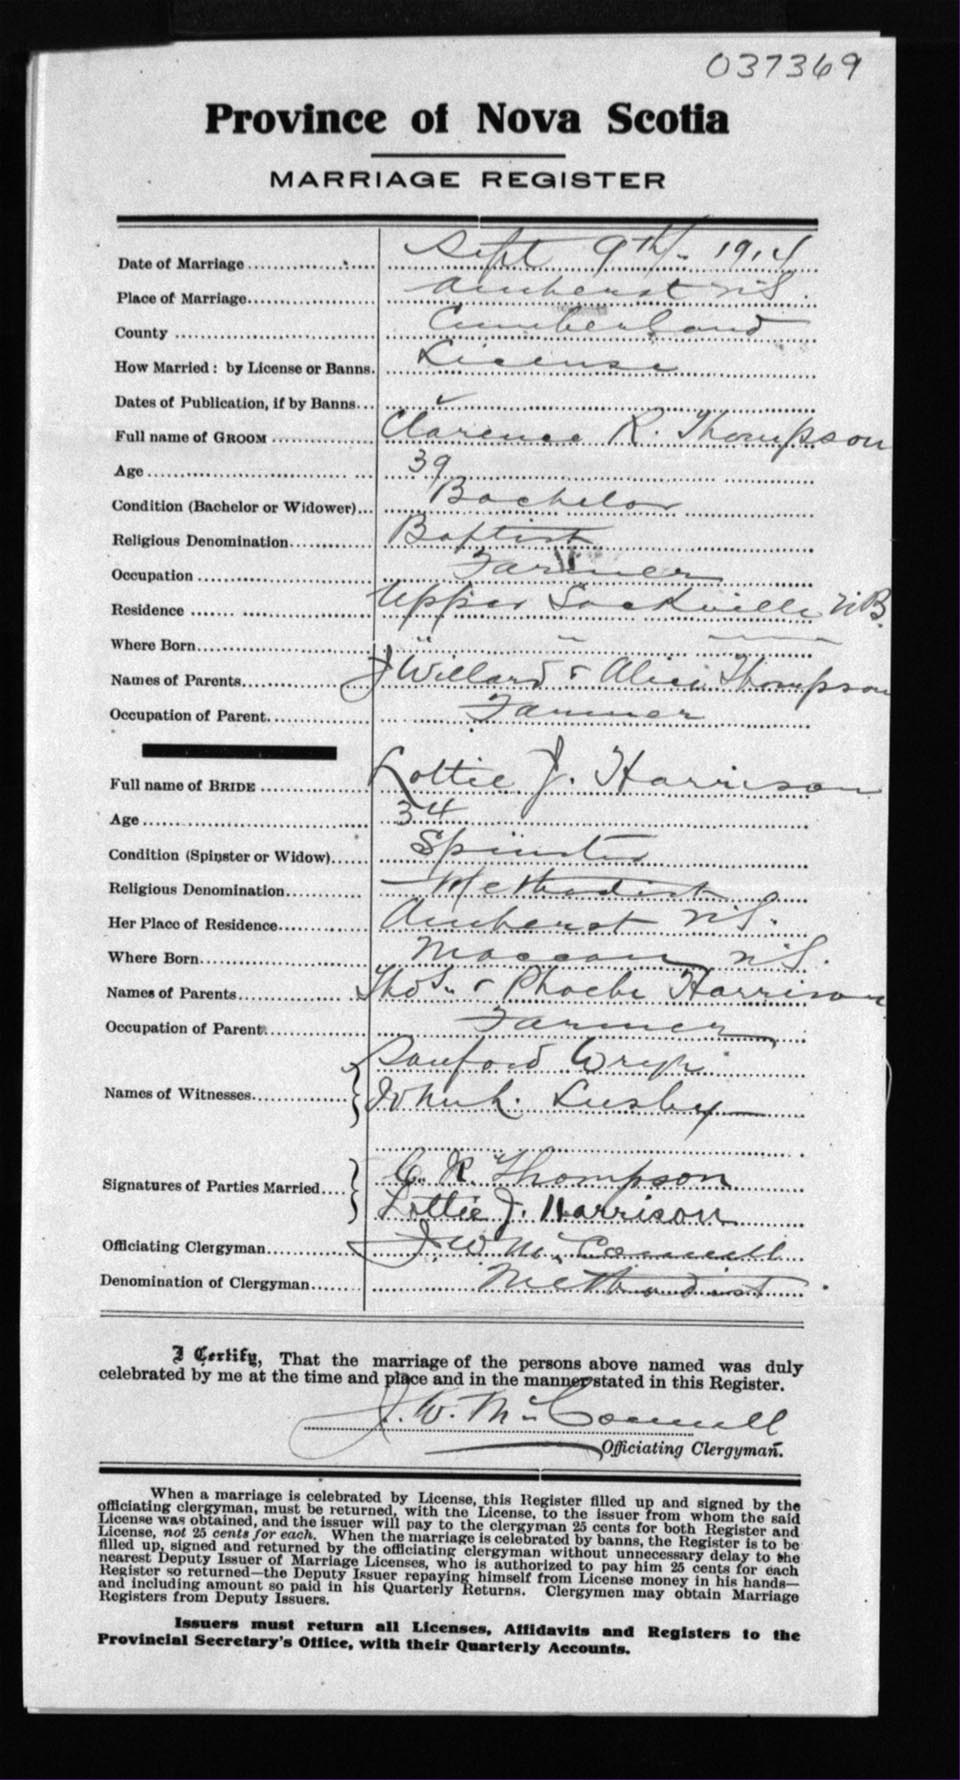 037369
Province of Nova Scotia
MARRIAGE REGISTER
Date of Marriage Sept 9th 1914
Place of Marriage Amherst N.S.
County Cumberland
How Married: by License or Banns. License
Dates of Publication, if by Banns
Full name of GROOM Clarence R. Thompson
Age 39
Condition (Bachelor or Widower) Bachelor
Religious Denomination Baptist
Occupation Farmer
Residence Upper Sackville N.B.
Where Born " " "
Names of Parents J Willard & Alice Thompson
Occupation of Parent Farmer
Full name of BRIDE Lottie J. Harrison
Age 34
Condition (Spinster or Widow) Spinster
Religious Denomination Methodist
Her Place of Residence Amherst N.S.
Where Born Maccan N.S.
Names of Parents Thos. & Phoebe Harrison
Occupation of Parent Farmer
Names of Witnesses Sanford
John L. Lusby
Signatures of Parties Married C. R. Thompson
Lottie J. Harrison
Officiating Clergyman J. W. McConnell
Denomination of Clergyman Methodist
I Certify, That the marriage of the persons above named was duly
celebrated by me at the time and place and in the manner stated in this Register.
J. W. McConnell
Officiating Clergyman.
When a marriage is celebrated by License, this Register filled up and signed by the
officiating clergyman, must be returned, with the License, to the issuer from whom the said
License was obtained, and the issuer will pay to the clergyman 25 cents for both Register and
License, not 25 cents for each. When the marriage is celebrated by banns, the Register is to be
filled up, signed and returned by the officiating clergyman without unnecessary delay to the
nearest Deputy Issuer of Marriage Licenses, who is authorized to pay him 25 cents for each
Register so returned—the Deputy Issuer repaying himself from License money in his hands—
and including amount so paid in his Quarterly Returns. Clergymen may obtain Marriage
Registers from Deputy Issuers.
Issuers must return all Licenses, Affidavits and Registers to the
Provincial Secretary's Office, with their Quarterly Accounts.